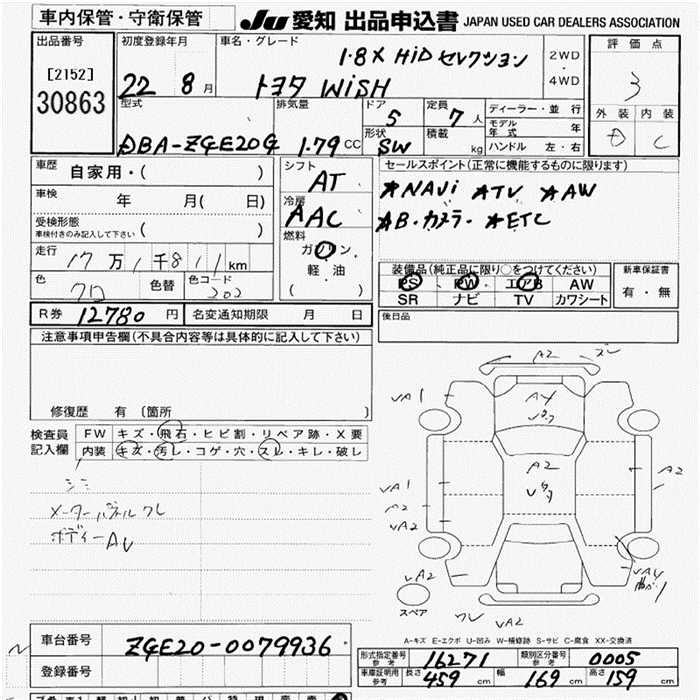 車内保管・守衛保管
JU 愛知 出品申込書 JAPAN USED CAR DEALERS ASSOCIATION
出品番号
[2152]
30863
初度登録年月
22 8月
車名・グレード
1.8X HiD セレクション
トヨタ WiSH
2WD
・
4WD
評価点
3
外装 内装
D C
型式
DBA-ZGE20G
排気量
1.79 CC
ドア
5
定員
7人
形状
SW
積載
kg
ディーラー・並行
モデル年式 年
ハンドル 左・右
車歴 自家用・( )
車検 年 月( 日)
受検形態
車検付きのみ記入して下さい ( )
走行 17万1千811km
色 クロ 色替
色コード 202
シフト
AT
冷房
AAC
燃料
ガソリン
・
軽油
( )
セールスポイント(正常に機能するものに限ります)
★NAVi ★TV ★AW
★B・カメラ・ ★ETC
装備品(純正品に限り○をつけてください)
PS PW エアB AW
SR ナビ TV カワシート
新車保証書
有・無
R券 12780円 名変通知期限 月 日
後日品
注意事項申告欄(不具合内容等は具体的に記入して下さい)
修復歴 有 〔箇所 〕
検査員
記入欄
FW キズ・飛石・ヒビ割・リペア跡・X要
内装 キズ・汚レ・コゲ・穴・スレ・キレ・破レ
シミ
メーターパネルワレ
ボディーAU
A2 ズレ
VA1
A4
A2
A2
VA1
A2
VA2
VA2
VA4
曲がり
スペア
ワレ VA2
A-キズ E-エクボ U-凹み W-補修跡 S-サビ C-腐食 XX-交換済
車台番号 ZGE20-0079936
登録番号
形式指定番号
参考
16271
類別区分番号
参考
0005
車庫証明用
参考
長さ 459cm 幅 169cm 高さ 159cm